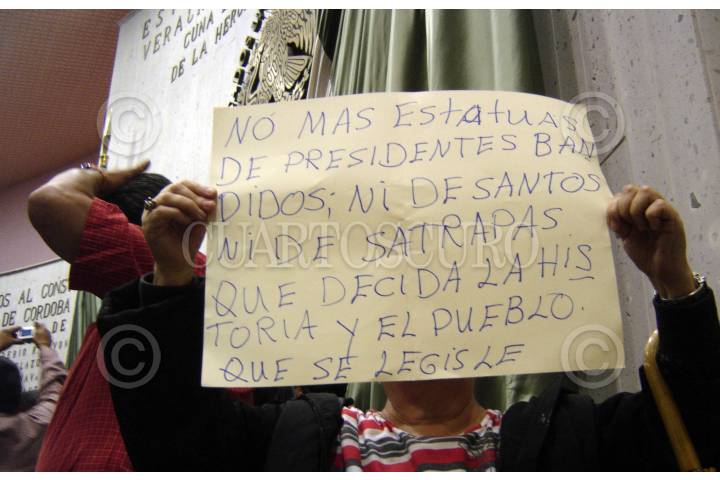 ES
VERAC
CUNA
DE LA HER
NO MAS EStAtUAS
DE PRESIDENTES BAN
DIDOS; Ni DE SANTOS
Ni DE SATRAPAS
QUE DECIDA LA HIS
TORIA Y EL PUEBLO.
QUE SE LEGISLE
CUARTOSCURO
OS AL CONS
DE CORDOBA